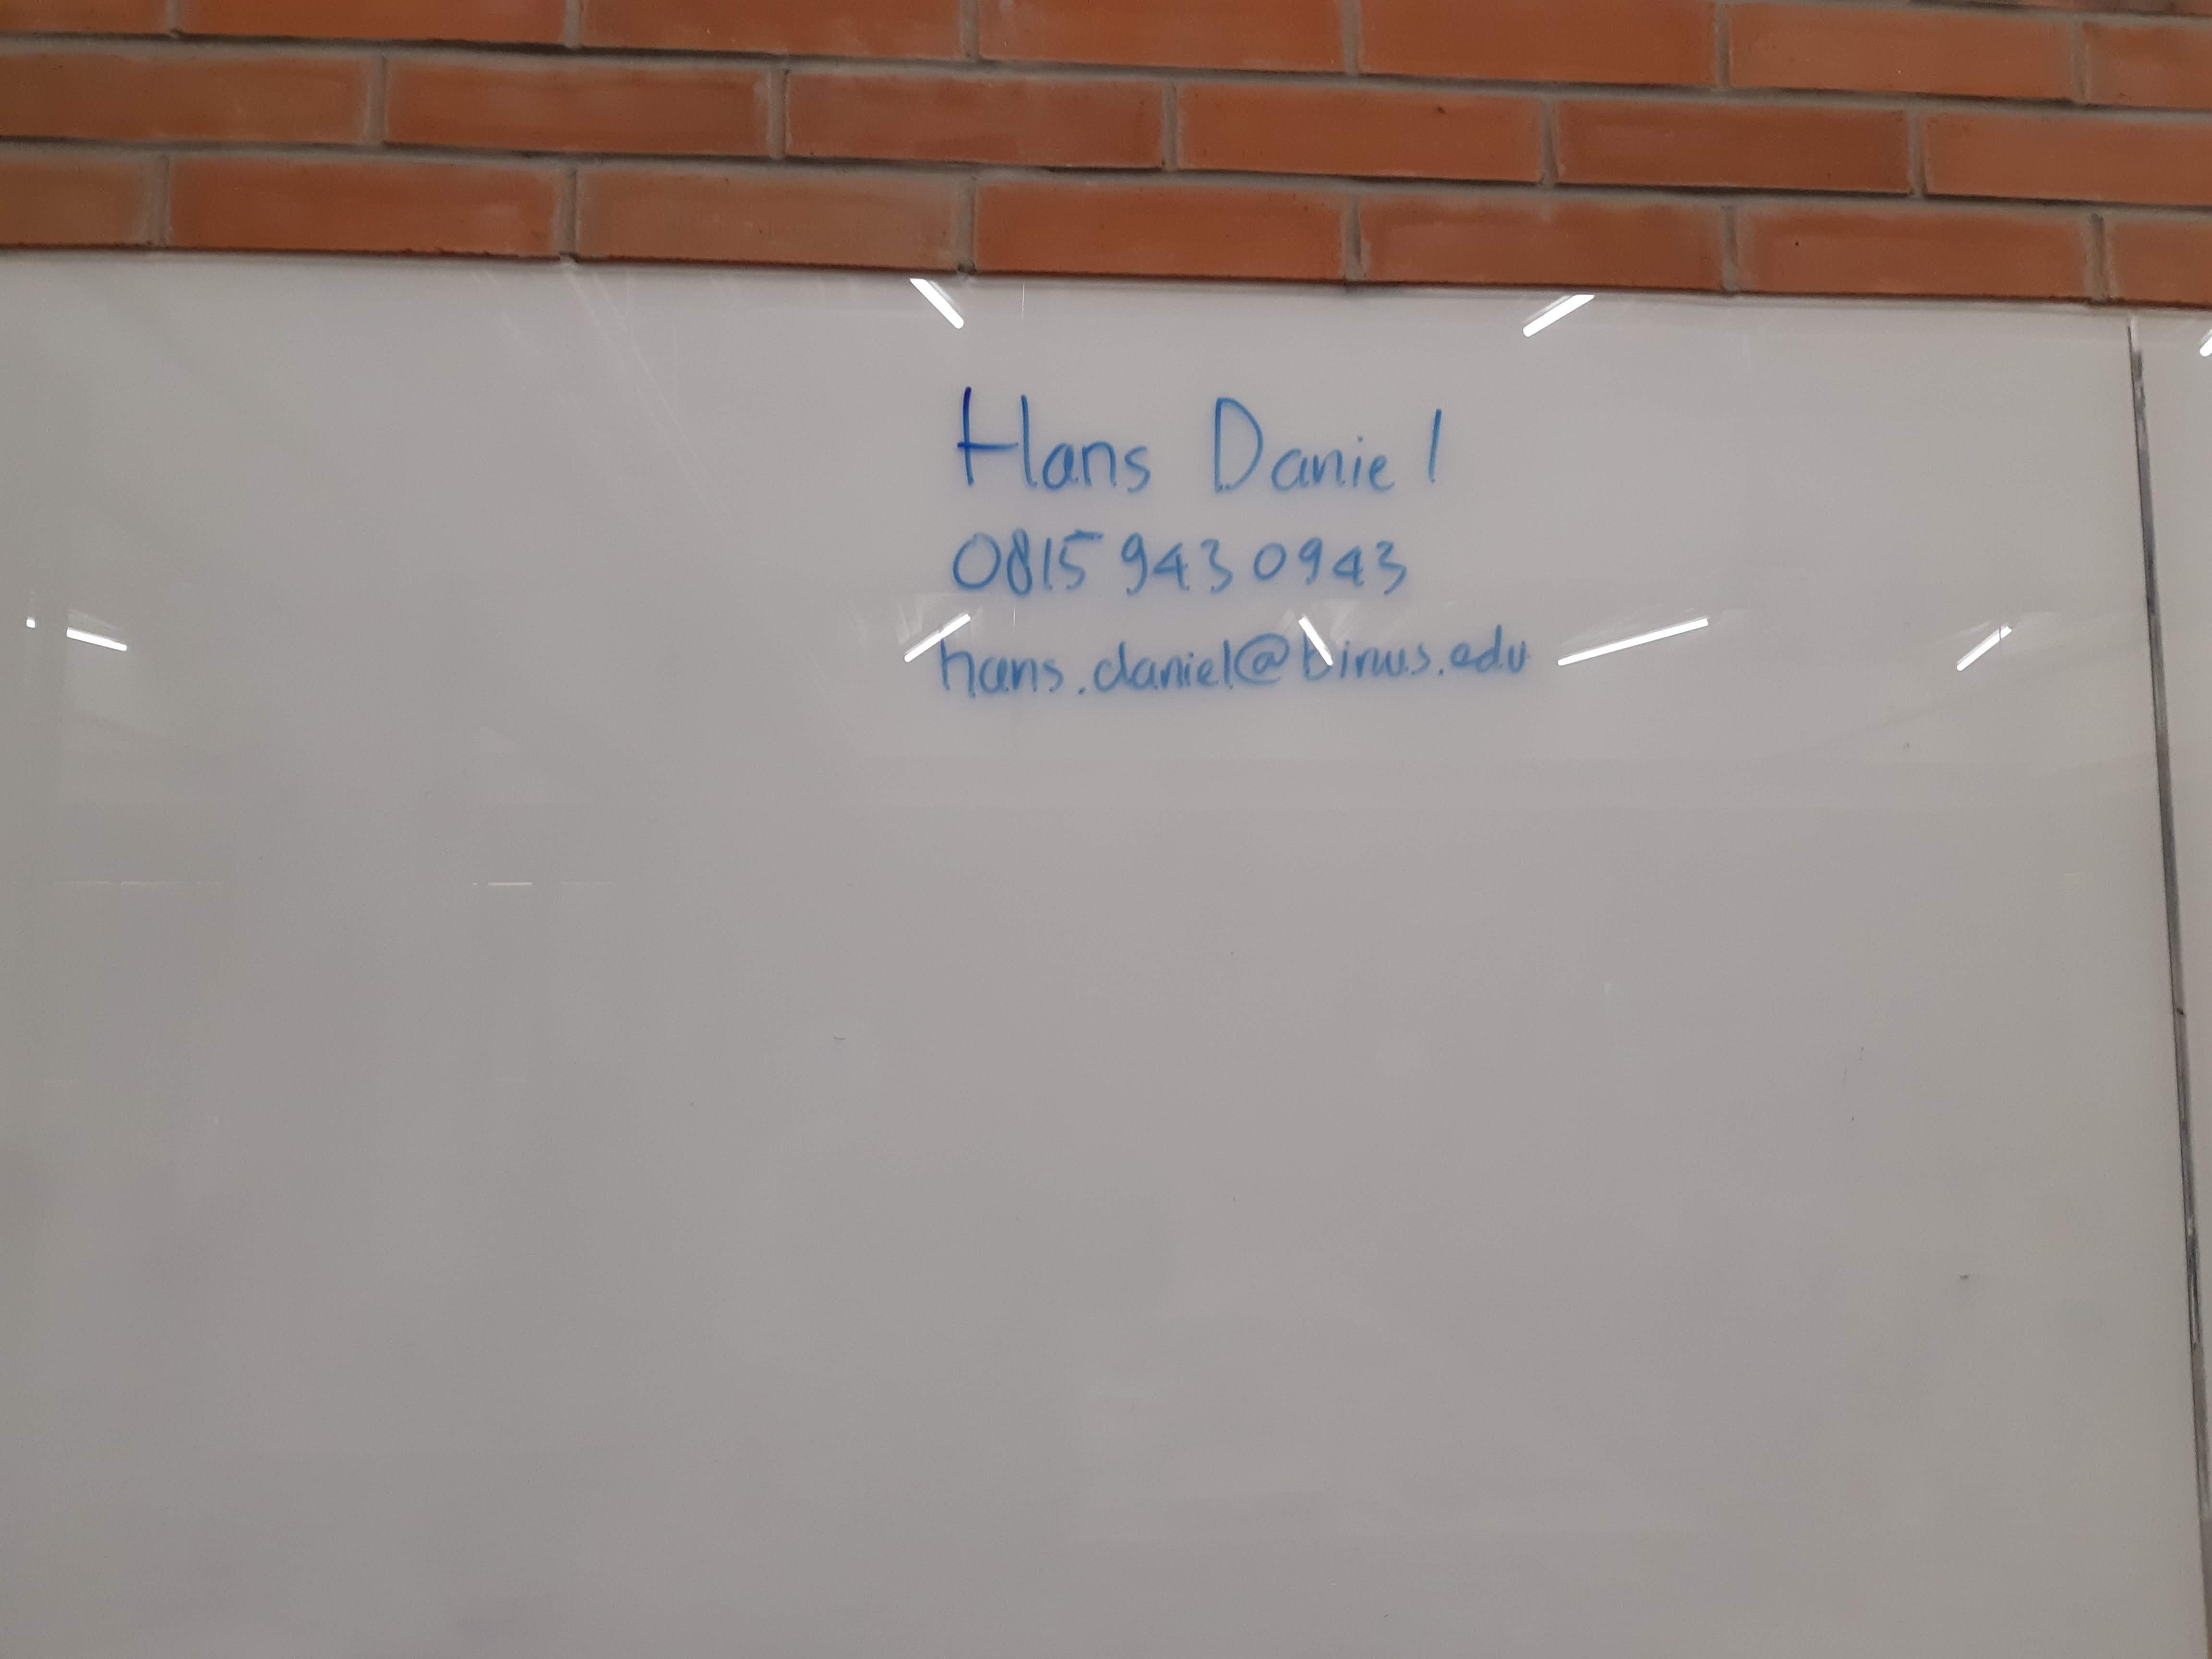 Hans Daniel
0815 943 0943
hans.daniel@binus.edu